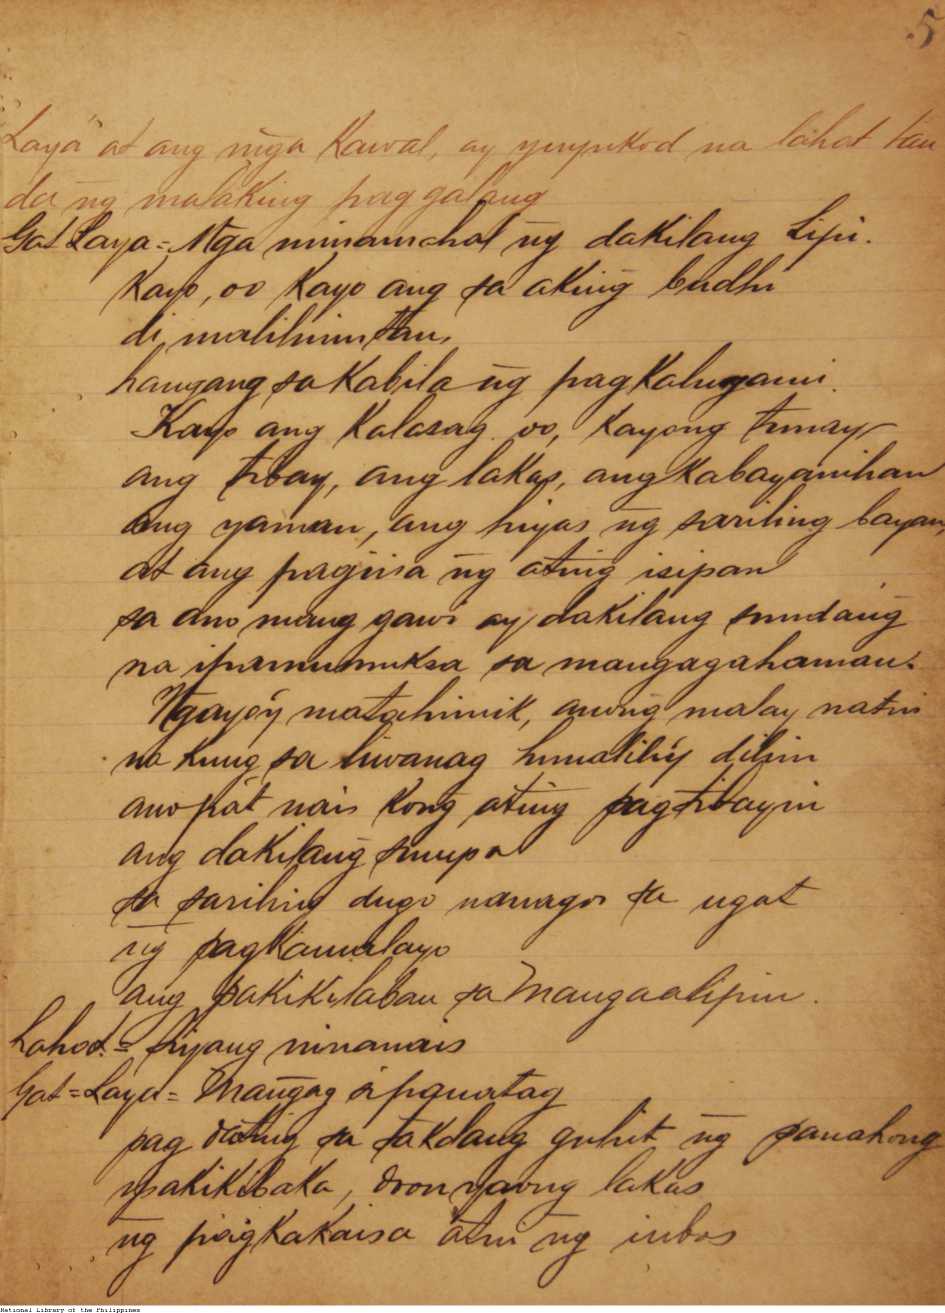 5
Laya at ang mga Kawal, ay yuyukod na lahat tan
da ng malaking paggalang
Gat Laya = Mga minamahal ng dakilang Lipi.
Kayo, oo Kayo ang sa aking budhi
di malilimutan,
hangang sa Kabila ng pagkalugami.
Kayo ang Kalasag oo, Kayong tunay
ang tibay, ang lakas, ang Kabayanihan
ang yaman, ang hiyas ng sariling bayan,
at ang pagiisa ng ating isipan
sa ano mang gawi ay dakilang sundang
na ipamumuksa sa mangagahaman.
Ngayo'y matahimik, anong malay natin
na kung sa liwanag humalili'y dilim
ano pa't nais kong ating pagtibayin
ang dakilang sumpa
sa sariling dugo nanagos sa ugat
ng pagkamulayo
ang pakikilaban sa Mangaalipin.
Lahat = Siyang ninanais
Gat = Laya = Mangag sipanatag
pag dating sa takdang guhit ng panahong
makikibaka, doon yaong lakas
ng pagkakaisa ati ng iubos
National Library of the Philippines